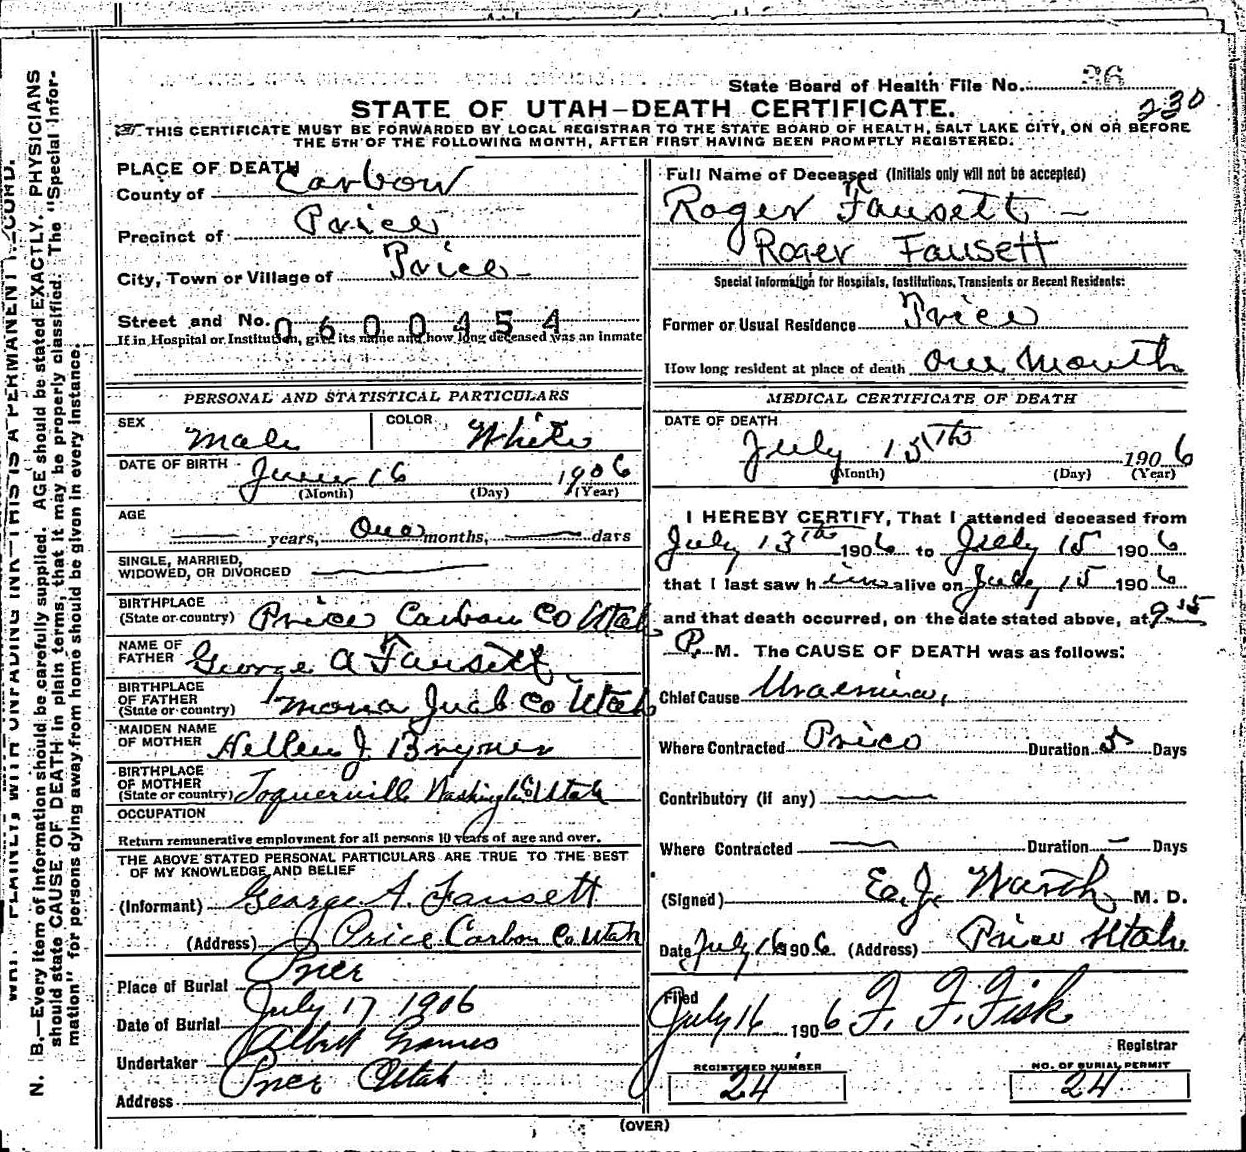 State Board of Health File No. 36
230
STATE OF UTAH—DEATH CERTIFICATE.
THIS CERTIFICATE MUST BE FORWARDED BY LOCAL REGISTRAR TO THE STATE BOARD OF HEALTH, SALT LAKE CITY, ON OR BEFORE
THE 5TH OF THE FOLLOWING MONTH, AFTER FIRST HAVING BEEN PROMPTLY REGISTERED.
PLACE OF DEATH
County of Carbon
Precinct of Price
City, Town or Village of Price
Street and No. 0600454
If in Hospital or Institution, give its name and how long deceased was an inmate
Full Name of Deceased (Initials only will not be accepted)
Roger Fausett
Roger Fausett
Special Information for Hospitals, Institutions, Transients or Recent Residents:
Former or Usual Residence Price
How long resident at place of death One Month
PERSONAL AND STATISTICAL PARTICULARS
SEX Male COLOR White
DATE OF BIRTH June 16 1906
(Month) (Day) (Year)
AGE
— years, One months, — days
SINGLE, MARRIED,
WIDOWED, OR DIVORCED —
BIRTHPLACE
(State or country) Price Carbon Co Utah
NAME OF
FATHER George A Fausett
BIRTHPLACE
OF FATHER
(State or country) Mona Juab Co Utah
MAIDEN NAME
OF MOTHER Hellen J Bryner
BIRTHPLACE
OF MOTHER
(State or country) Toquerville Washington Co Utah
OCCUPATION
Return remunerative employment for all persons 10 years of age and over.
THE ABOVE STATED PERSONAL PARTICULARS ARE TRUE TO THE BEST
OF MY KNOWLEDGE AND BELIEF
(Informant) George A. Fausett
(Address) Price Carbon Co. Utah
Place of Burial Price
Date of Burial July 17 1906
Undertaker Albert Grames
Address Price Utah
MEDICAL CERTIFICATE OF DEATH
DATE OF DEATH
July 15th 1906
(Month) (Day) (Year)
I HEREBY CERTIFY, That I attended deceased from
July 13th 1906 to July 15 1906
that I last saw him alive on July 15 1906
and that death occurred, on the date stated above, at 9 15
P. M. The CAUSE OF DEATH was as follows:
Chief Cause Uraemia,
Where Contracted Price Duration 5 Days
Contributory (if any) —
Where Contracted — Duration — Days
(Signed) M. D.
Date July 16 1906. (Address) Price Utah
Filed
July 16 1906 F. F. Fisk
Registrar
REGISTERED NUMBER
24
NO. OF BURIAL PERMIT
24
(OVER)
N. B.—Every item of information should be carefully supplied. AGE should be stated EXACTLY. PHYSICIANS
should state CAUSE OF DEATH in plain terms, that it may be properly classified. The "Special Infor-
mation" for persons dying away from home should be given in every instance.